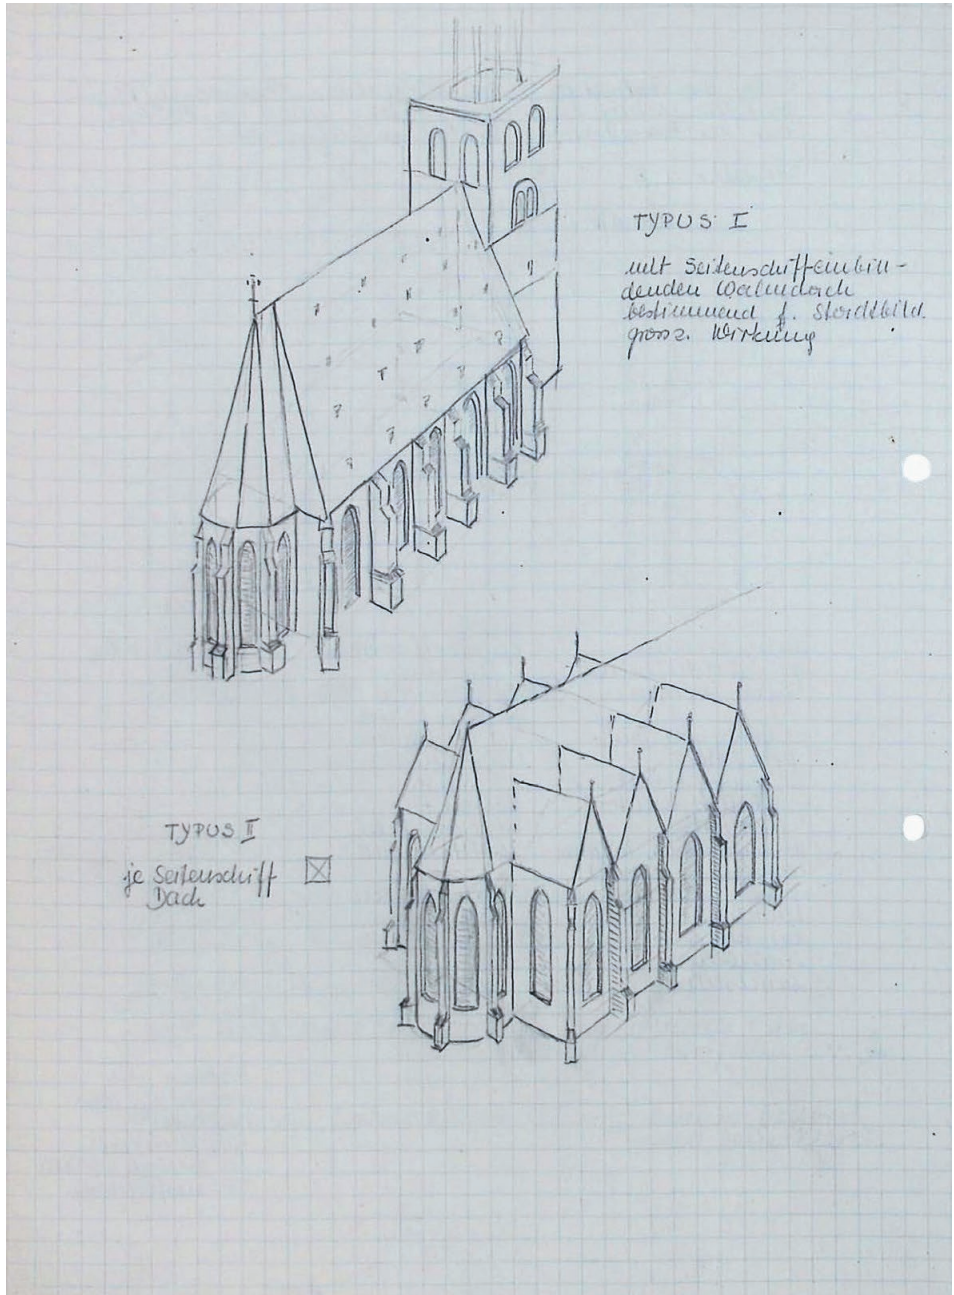 TYPUS I
mit Seitenschiffeinbin-
denden Walmdach
bestimmend f. Stadtbild.
grosz. Wirkung
TYPUS II
je Seitenschiff
Dach